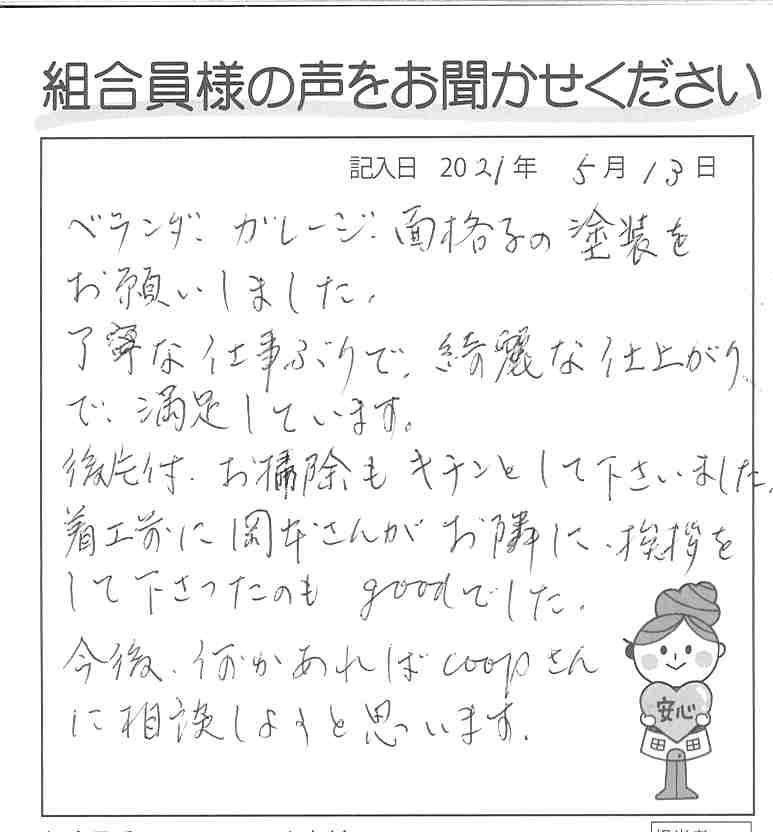 組合員様の声をお聞かせください
記入日 2021年 5月13日
ベランダ、ガレージ、面格子の塗装を
お願いしました。
丁寧な仕事ぶりで、綺麗な仕上がり
で、満足しています。
後片付、お掃除もキチンとして下さいました。
着工前に岡本さんがお隣に、挨拶を
して下さったのもgoodでした。
今後、何かあればcoopさん
に相談しようと思います。
安心